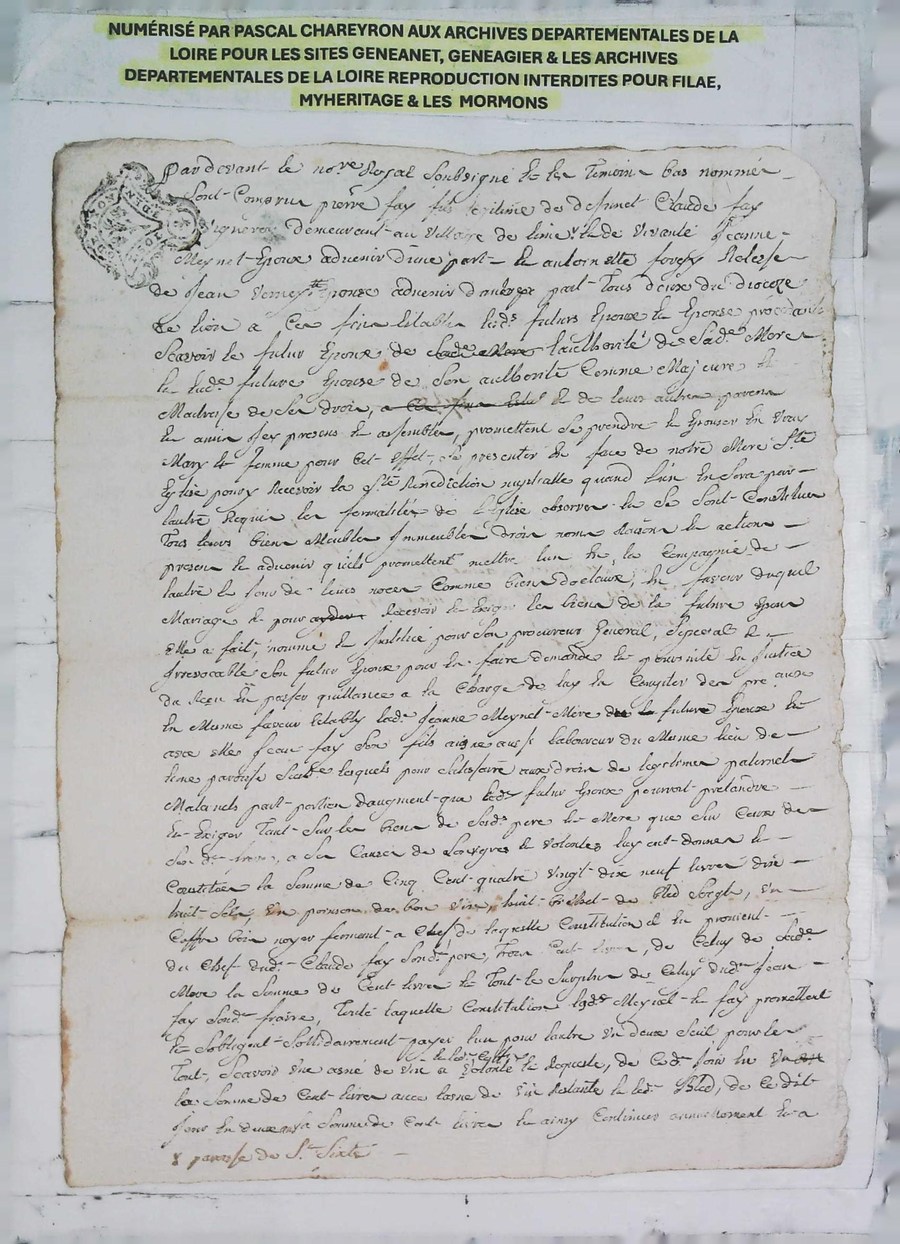 NUMÉRISÉ PAR PASCAL CHAREYRON AUX ARCHIVES DEPARTEMENTALES DE LA
LOIRE POUR LES SITES GENEANET, GENEAGIER & LES ARCHIVES
DEPARTEMENTALES DE LA LOIRE REPRODUCTION INTERDITES POUR FILAE,
MYHERITAGE & LES MORMONS
Pardevant le no.re Royal soubsigné et les Temoins bas nommés
sont Comparus pierre fay fils legitime de deffunct Claude fay
Vigneron demeurant au Village de
Meynet Epoux advenir d'une part et antoinette Relesse
de Jean Epouse advenir d'autre part Tous deux du dioceze
de lion a Ces fins Establies lesd. futurs Epoux et Epouse procedants
Scavoir le futur Epoux de l'authorité de Sad. Mere
et lad. future Epouse de Son authorité Comme Majeure et
Maitresse de Ses droits, et de leurs autres parens
et amis Icy presens et assemblés, promettent Se prendre et Epouser en Vray
Mary et femme pour Cet Effet, Se presenter en face de notre Mere Ste
Eglise pour y Recevoir la Ste Benediction nuptialle quand l'un en Sera par
l'autre Requis les formalités de l'Eglise observées et Se Sont Constitués
Tous leurs biens Meubles Immeubles droits noms Raisons et actions
presens et advenir qu'ils promettent mettre l'un en la Compagnie de
l'autre le Jour de leurs noces Comme biens dotaux, en faveur duquel
Mariage et pour Recevoir et Exiger les biens de la future Epouse
elle a fait, nommé et Institué pour Son procureur General, Special et
Irrevocable Son futur Epoux pour en faire demande et poursuite en Justice
du Reçu En passer quittance a la Charge de
En Meme faveur Establis lad. Jeanne Meynet Mere futur Epoux et
avec elle Jean fay Son fils aisne aussi laboureur du Meme lieu de
lesquels pour Satisfaire aux droits de legitime paternels
Maternels part portion d'augment que led. futur Epoux pourroit pretendre
et Exiger Tant Sur les biens de Sond. pere et Mere que Sur Ceux de
Son d. frere, a Ses Causes de Leurs grés et Volontés luy ont donnés et
Constitués la Somme de Cinq Cent quatre Vingt dix neuf livres dix
huit Sols, Un poinson de bon Vin, huit de bled Seigle, Un
Coffre bois noyer fermant a Clef de laquelle Constitution il en provient
du Chef dud. Claude fay Sond. pere, Trois Cent livres, de Celuy de Sad.
Mere la Somme de Cent livres et Tout le Surplus de Celuy dud. Jean
fay Sond. fraire, Toute laquelle Constitution et fay promettent
et S'obligent Sollidairement payer l'un pour l'autre Un d'eux Seul pour le
Tout, Scavoir de Vin a Volonté et Requeste, de Ced. Jour en
la Somme de Cent livres avec de Vin Restante et led. Bled, de Ce dit
Jour en deux ans la Somme de Cent livres et ainsy Continuer annuellement
parroisse de St. Sixte